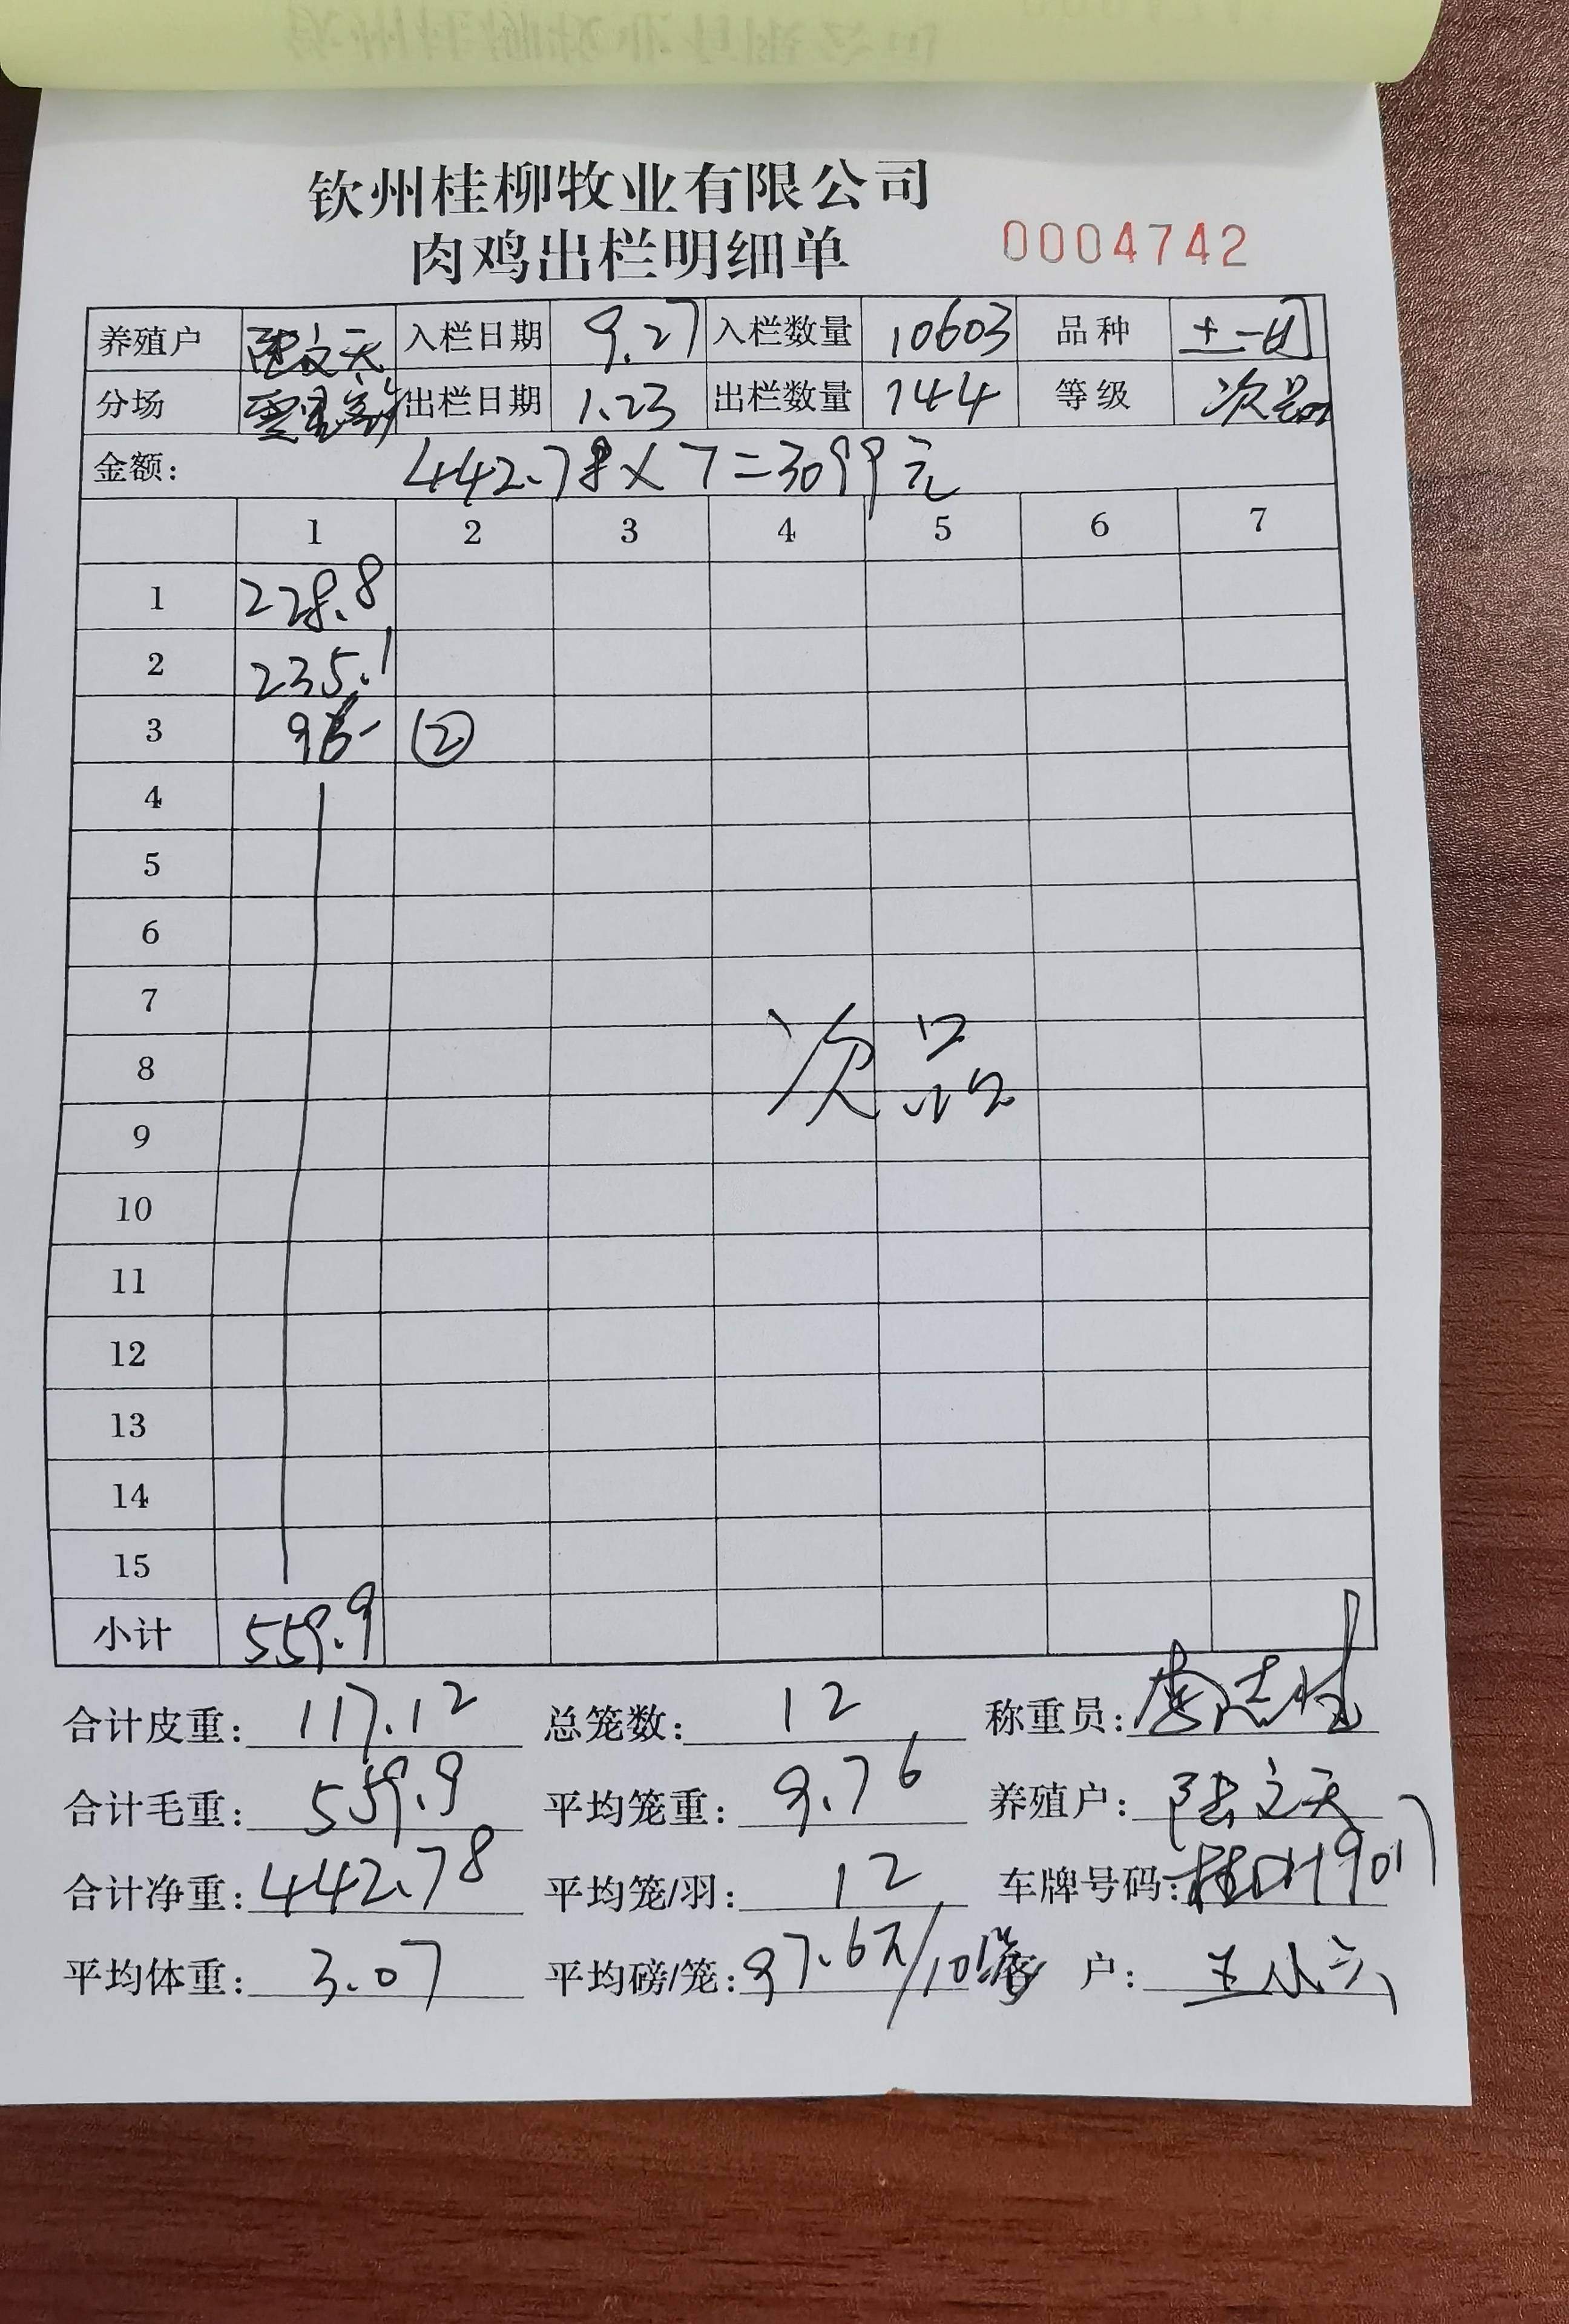 钦州桂柳牧业有限公司
肉鸡出栏明细单 0004742
养殖户 陆文天 入栏日期 9.27 入栏数量 10603 品种 土一
分场 出栏日期 1.23 出栏数量 144 等级 次品
金额: 442.78×7=3099元
1 2 3 4 5 6 7
1 228.8
2 235.1
3 96- ②
4
5
6
7
次品
8
9
10
11
12
13
14
15
小计 559.9
合计皮重: 117.12 总笼数: 12 称重员:
合计毛重: 559.9 平均笼重: 9.76 养殖户: 陆文天
合计净重: 442.78 平均笼/羽: 12 车牌号码: 9017
平均体重: 3.07 平均磅/笼: 97.6斤/10 客户: 王小六